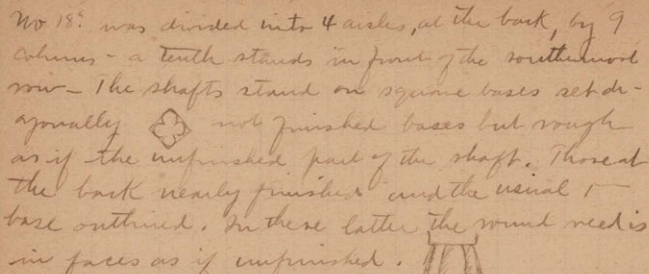 No 18. was divided into 4 aisles, at the back, by 9
columns - a tenth stands in front of the southernmost
row - The shafts stand on square bases set di-
agonally not finished bases but rough
as if the unfinished part of the shaft. Those at
the back nearly finished and the usual
base outlined. In these latter the round reed is
in faces as if unfinished.